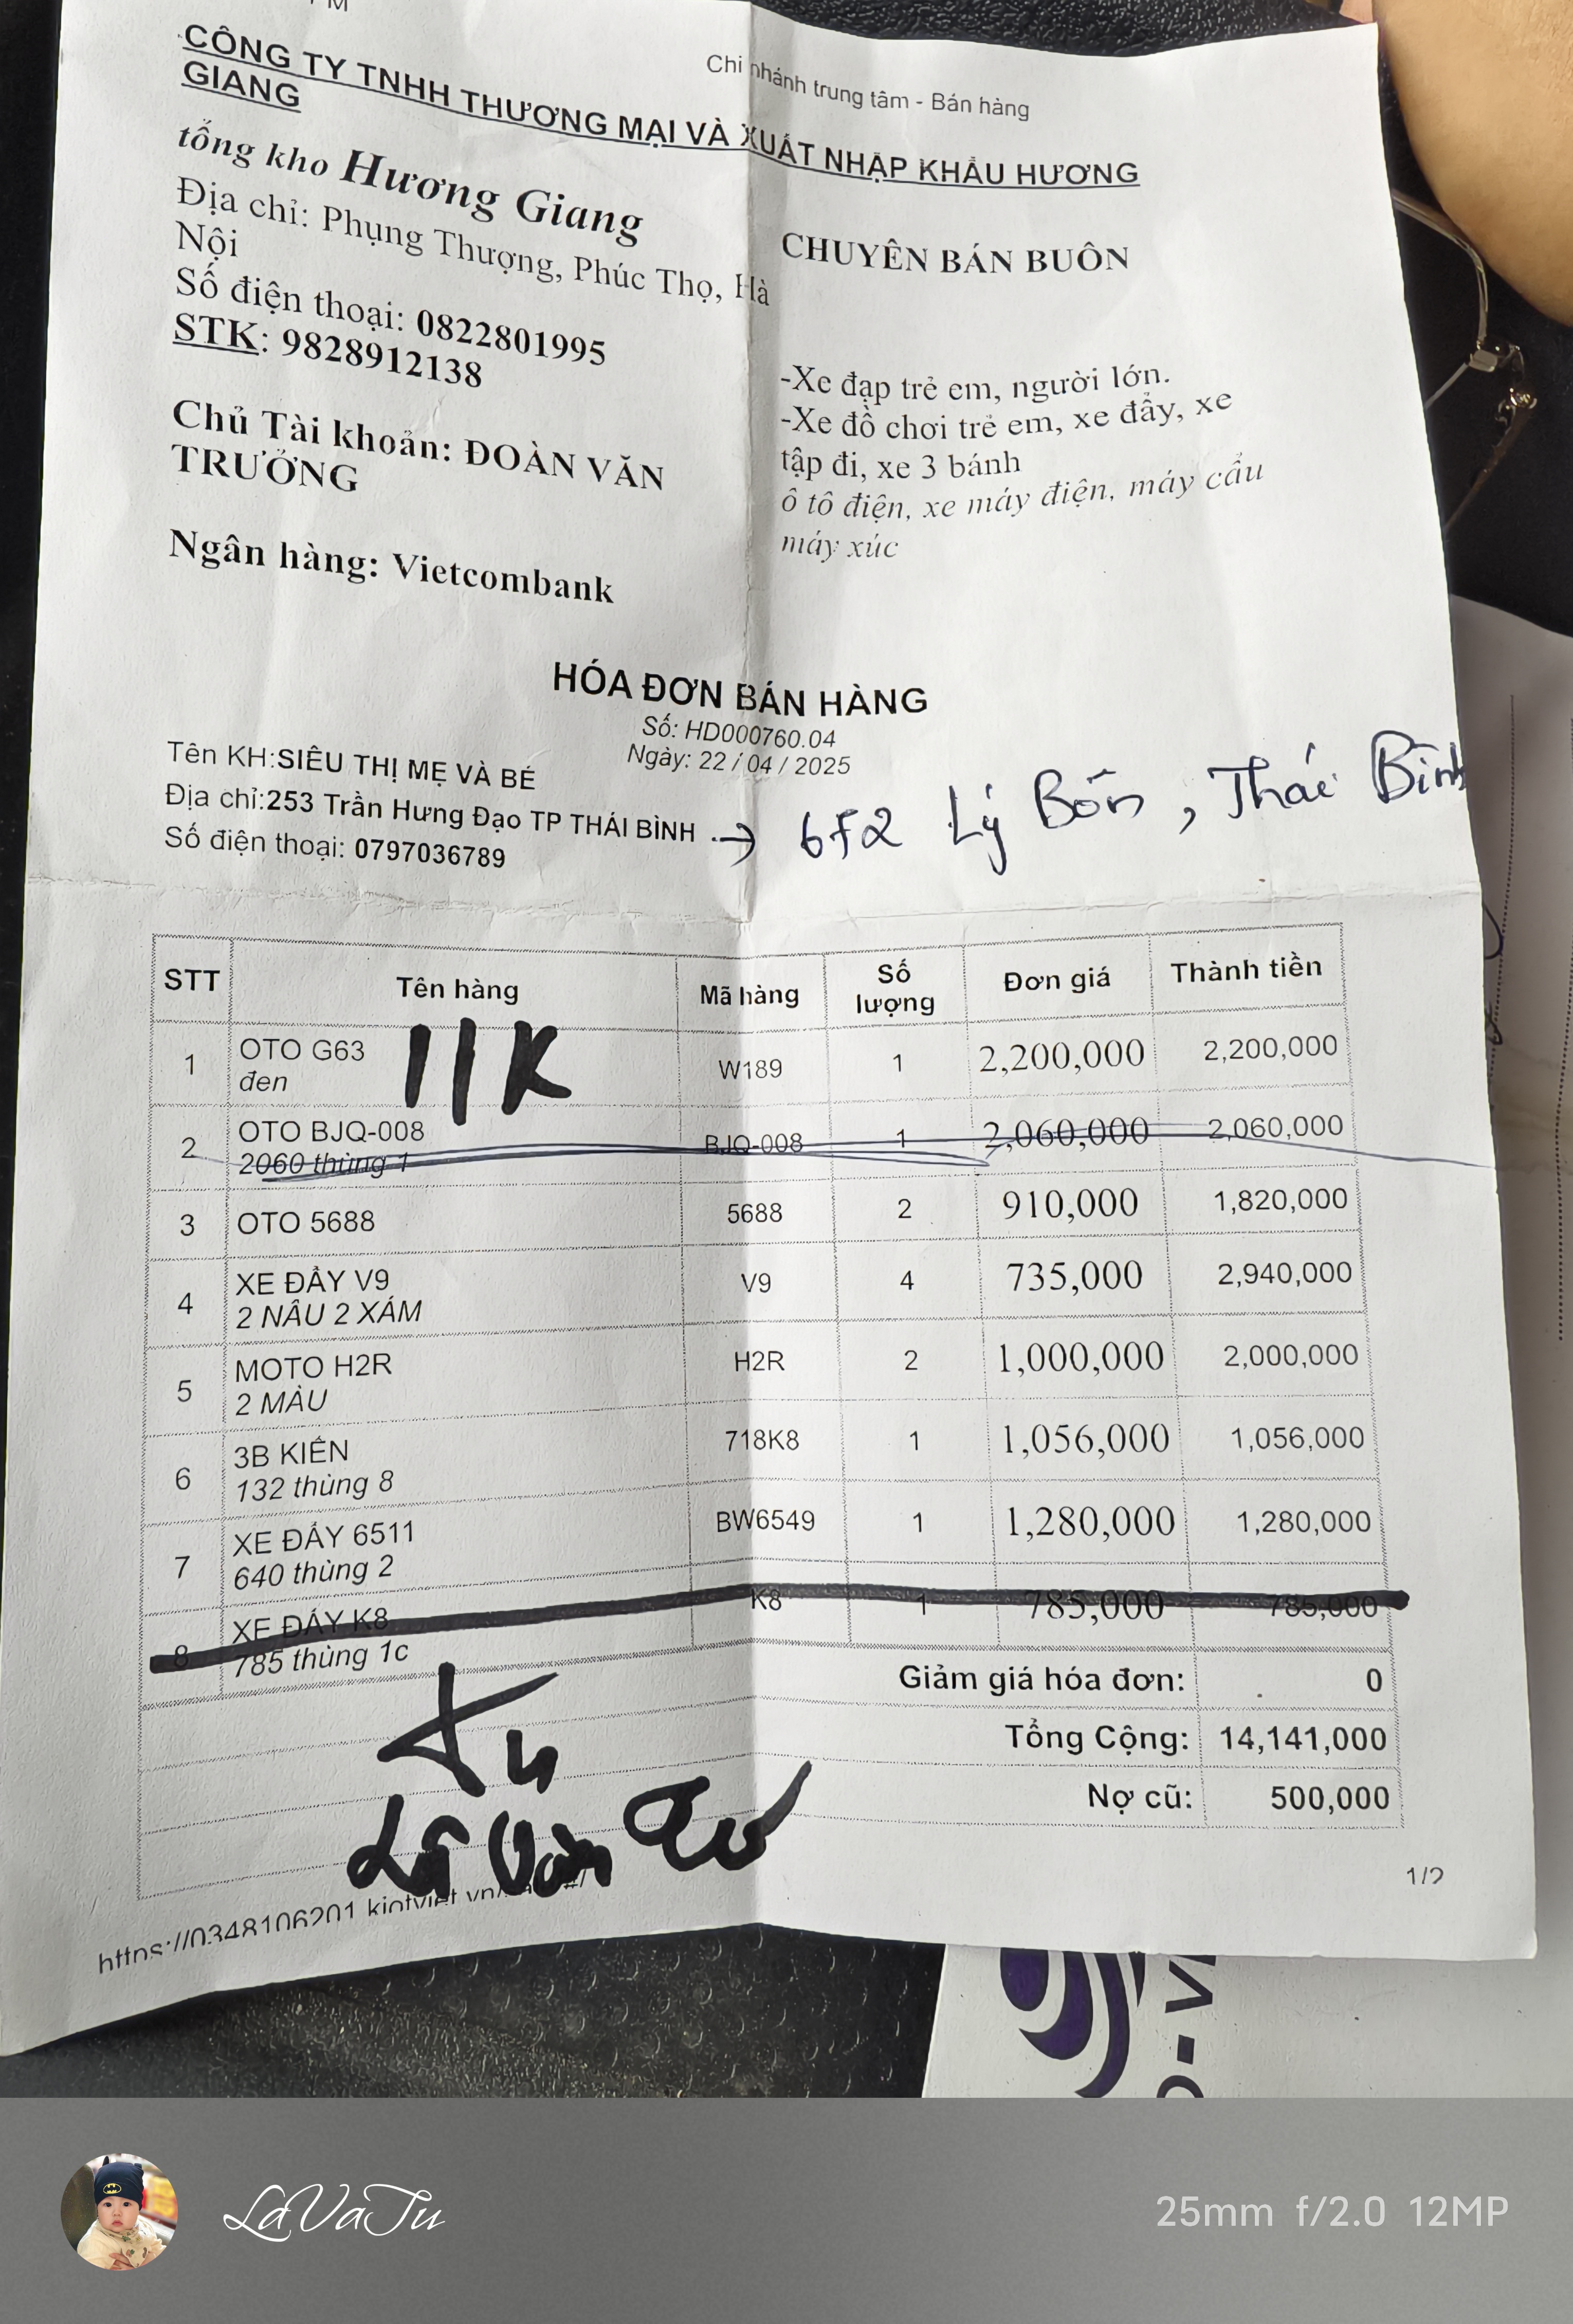 Chi nhánh trung tâm - Bán hàng
CÔNG TY TNHH THƯƠNG MẠI VÀ XUẤT NHẬP KHẨU HƯƠNG
GIANG
tổng kho Hương Giang
Địa chỉ: Phụng Thượng, Phúc Thọ, Hà
Nội
Số điện thoại: 0822801995
STK: 9828912138
Chủ Tài khoản: ĐOÀN VĂN
TRƯỞNG
Ngân hàng: Vietcombank
CHUYÊN BÁN BUÔN
-Xe đạp trẻ em, người lớn.
-Xe đồ chơi trẻ em, xe đẩy, xe
tập đi, xe 3 bánh
ô tô điện, xe máy điện, máy cẩu
máy xúc
HÓA ĐƠN BÁN HÀNG
Số: HD000760.04
Ngày: 22 / 04 / 2025
Tên KH:SIÊU THỊ MẸ VÀ BÉ
Địa chỉ:253 Trần Hưng Đạo TP THÁI BÌNH → 672 Lý Bôn, Thái Bình
Số điện thoại: 0797036789
STT Tên hàng Mã hàng Số lượng Đơn giá Thành tiền
1 OTO G63 W189 1 2,200,000 2,200,000
đen
11K
2 OTO BJQ-008 BJQ-008 1 2,060,000 2,060,000
2060 thùng 1
3 OTO 5688 5688 2 910,000 1,820,000
4 XE ĐẨY V9 V9 4 735,000 2,940,000
2 NÂU 2 XÁM
5 MOTO H2R H2R 2 1,000,000 2,000,000
2 MÀU
6 3B KIẾN 718K8 1 1,056,000 1,056,000
132 thùng 8
7 XE ĐẨY 6511 BW6549 1 1,280,000 1,280,000
640 thùng 2
8 XE ĐẨY K8 K8 1 785,000 785,000
785 thùng 1c
Giảm giá hóa đơn: 0
Tổng Cộng: 14,141,000
Nợ cũ: 500,000
Lã Văn Tư
1/2
https://0348106201.kiotviet.vn/
LaVaTu
25mm f/2.0 12MP